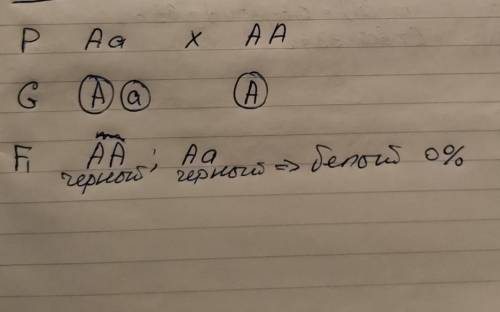 P Aa x AA
G A a A
F1 AA ; Aa
черный черный => белый 0%